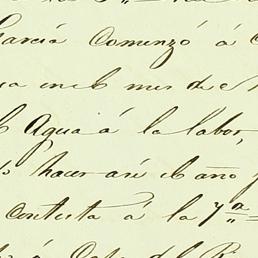 García Comenzó á
en el mes de
Agua á la labor,
hacer así el año
contesta á la 7ª